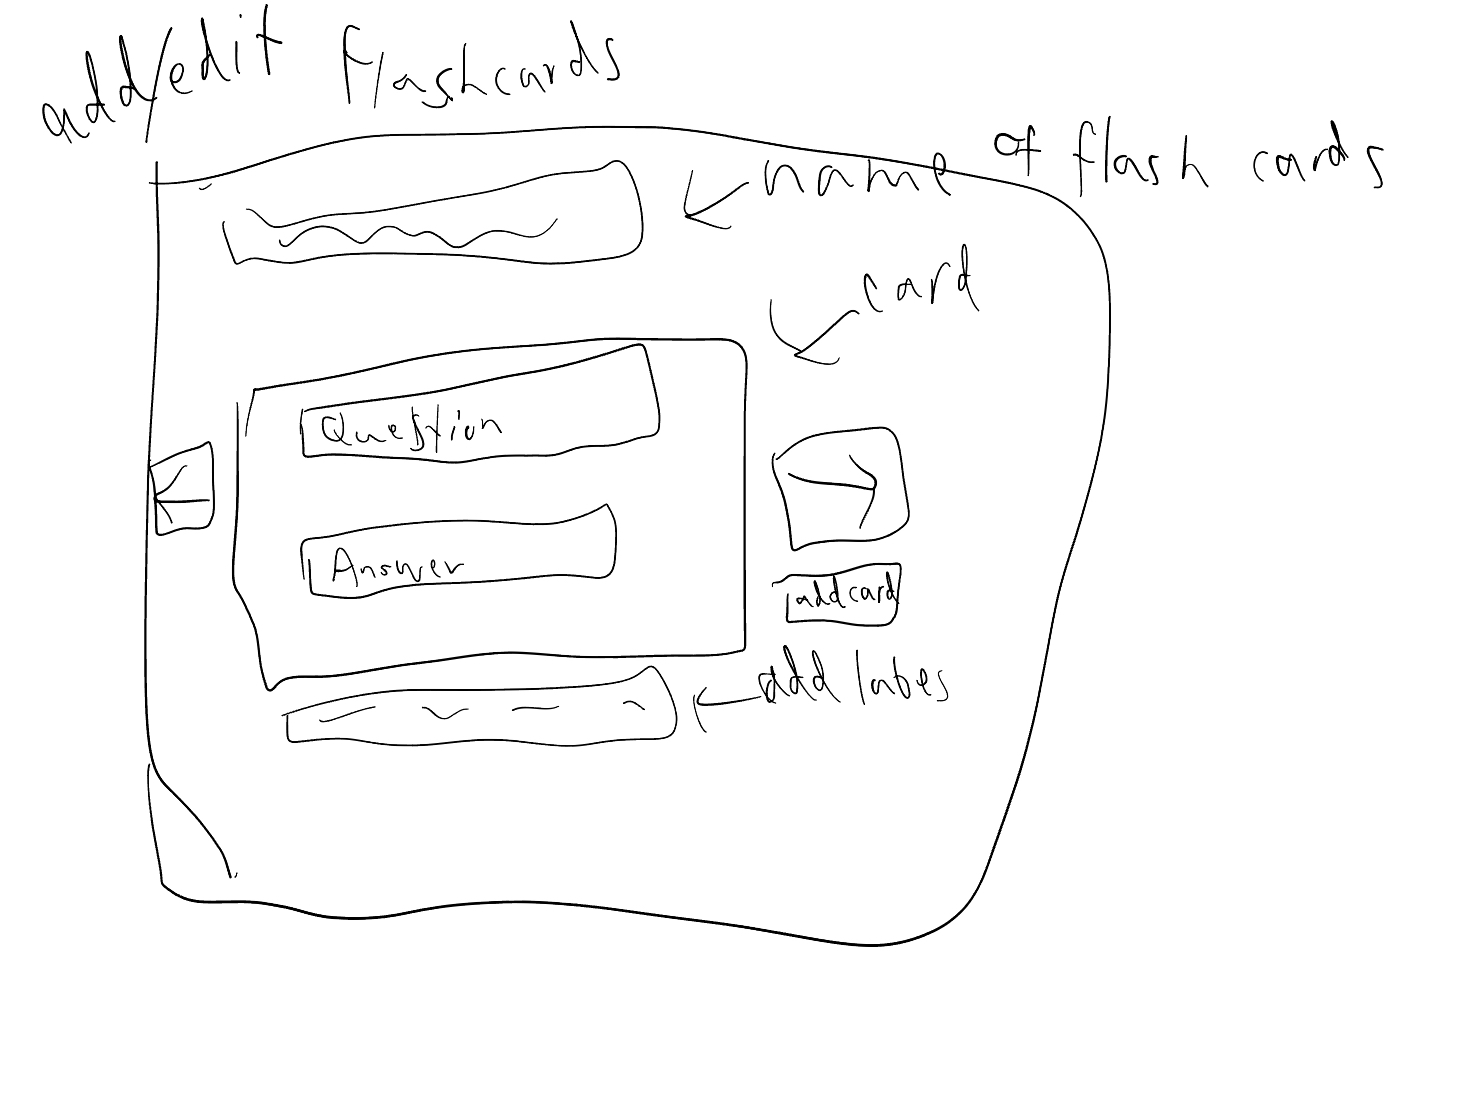 add/edit flashcards
name of flash cards
card
Question
Answer
add card
add labes